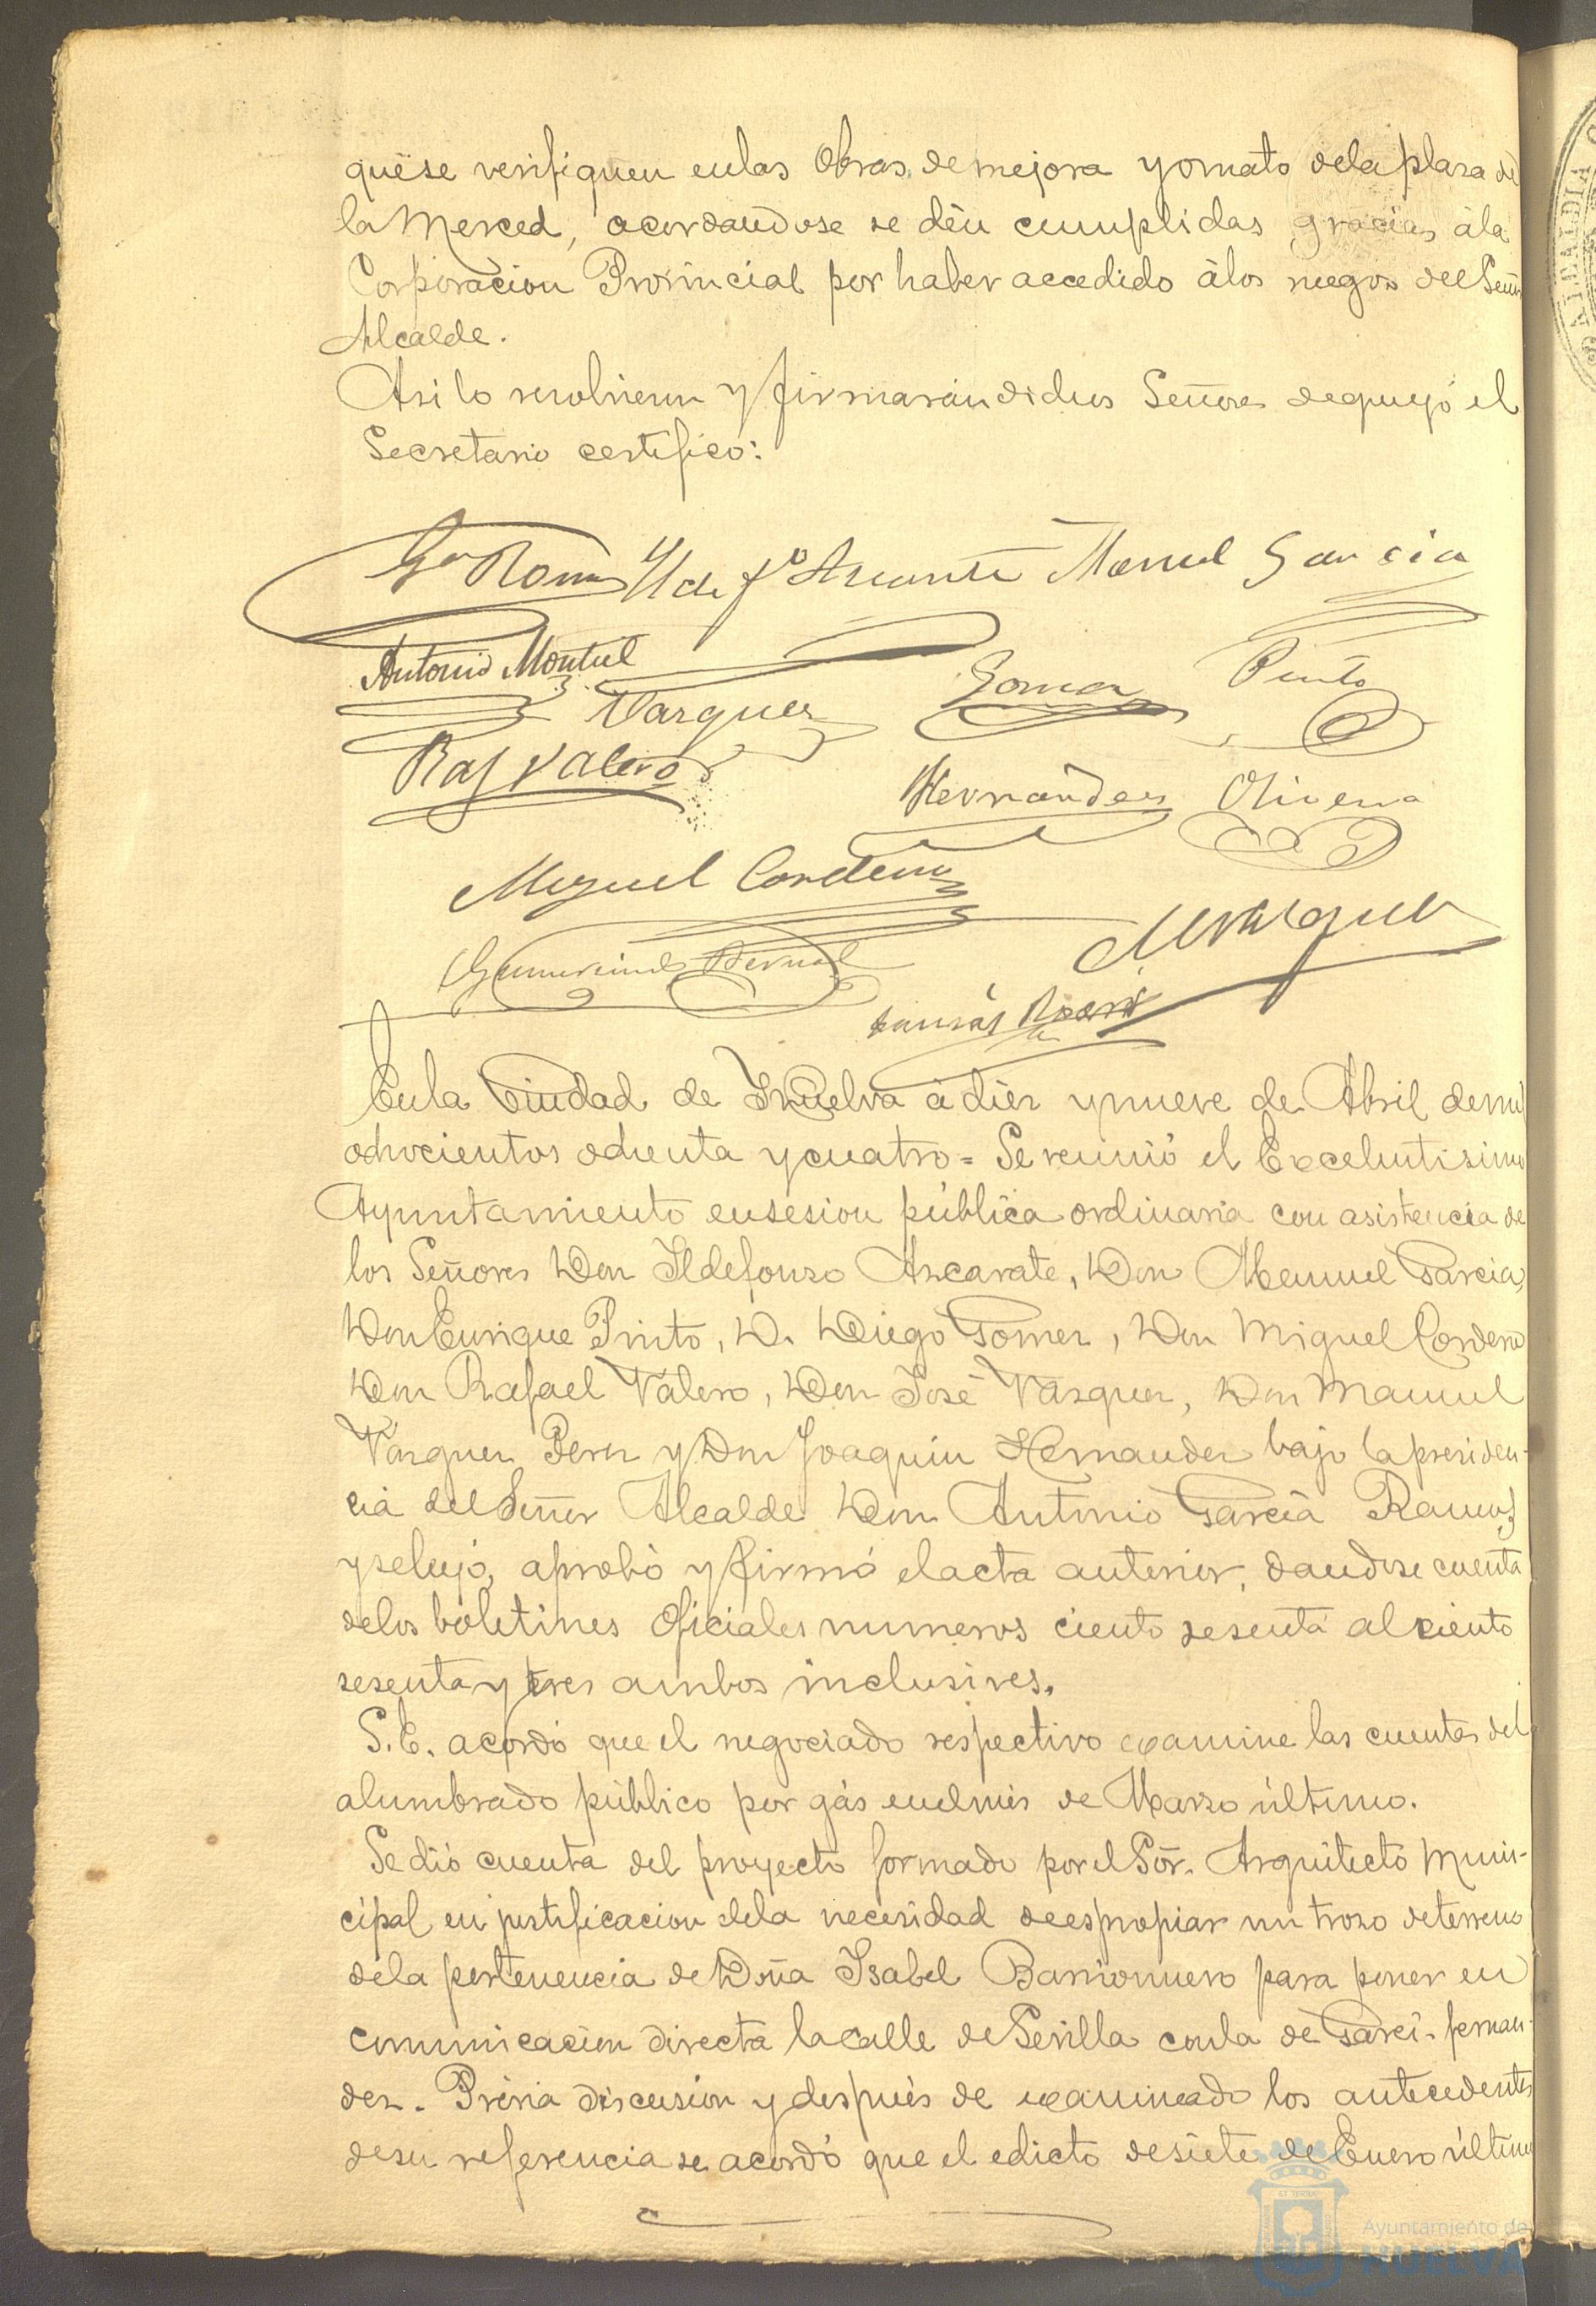 que se verifiquen en las Obras de mejora y ornato de la plaza de
la Merced, acordandose se dén cumplidas gracias á la
Corporacion Provincial por haber accedido á los ruegos del Señor
Alcalde.
Asi lo resolvieron y firmarán dichos Señores de que yó el
Secretario certifico:
Manuel Garcia
Antonio Montiel
Vazquez Gomez Pinto
Raf Valero
Hernández Olivera
Miguel Cordero
Gumersindo Bernal
En la Ciudad de Huelva á diez y nueve de Abril de mil
ochocientos ochenta y cuatro = Se reunió el Excelentisimo
Ayuntamiento en sesion pública ordinaria con asistencia de
los Señores Don Ildefonso Azcarate, Don Manuel Garcia,
Don Enrique Pinto, D. Diego Gomez, Don Miguel Cordero
Don Rafael Valero, Don José Vazquez, Don Manuel
Vazquez Perez y Don Joaquin Hernandez bajo la presiden-
cia del Señor Alcalde Don Antonio García Ramos
y se leyó, aprobó y firmó el acta anterior, dandose cuenta
de los boletines Oficiales numeros ciento sesenta al ciento
sesenta y tres ambos inclusives.
S.E. acordó que el negociado respectivo examine las cuentas del
alumbrado público por gás en el mes de Marzo último.
Se dió cuenta del proyecto formado por el Sór. Arquitecto Muni-
cipal en justificacion de la necesidad de espropiar un trozo de terreno
de la pertenencia de Doña Isabel Barrionuevo para poner en
comunicacion directa la calle de Sevilla con la de Garci-fernan-
dez. Prévia discusion y después de examinado los antecedentes
de su referencia se acordó que el edicto de siete de Enero último
Ayuntamiento de
HUELVA